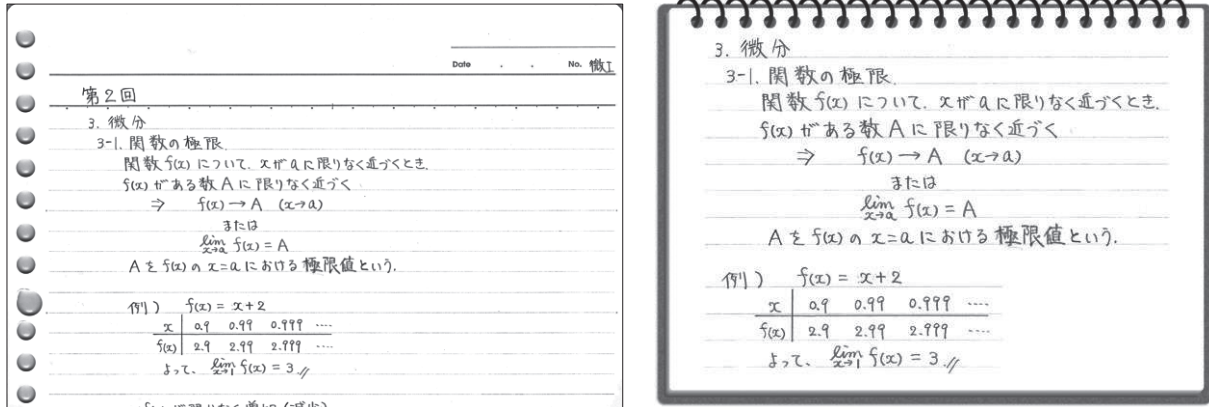 Date . . No. 微I
第2回
3. 微分
3-1. 関数の極限
関数f(x)について、xがaに限りなく近づくとき、
f(x)がある数Aに限りなく近づく
⇒ f(x)→A (x→a)
または
lim x→a f(x)=A
Aをf(x)のx=aにおける極限値という。
例) f(x)=x+2
x 0.9 0.99 0.999 ....
f(x) 2.9 2.99 2.999 ....
よって、lim x→1 f(x)=3 //
3. 微分
3-1. 関数の極限
関数f(x)について、xがaに限りなく近づくとき、
f(x)がある数Aに限りなく近づく
⇒ f(x)→A (x→a)
または
lim x→a f(x)=A
Aをf(x)のx=aにおける極限値という。
例) f(x)=x+2
x 0.9 0.99 0.999 ....
f(x) 2.9 2.99 2.999 ....
よって、lim x→1 f(x)=3 //